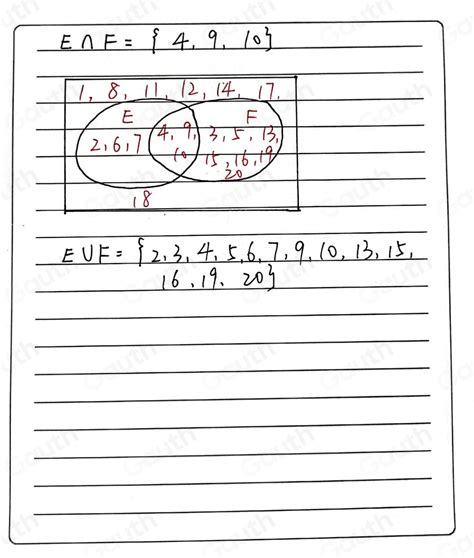 E ∩ F = { 4, 9, 10}
1, 8, 11, 12, 14, 17.
E F
2,6,7 4, 9, 3, 5, 13,
10 15, 16, 19
20
18
E ∪ F = { 2, 3, 4, 5, 6, 7, 9, 10, 13, 15,
16, 19, 20}
Gauth